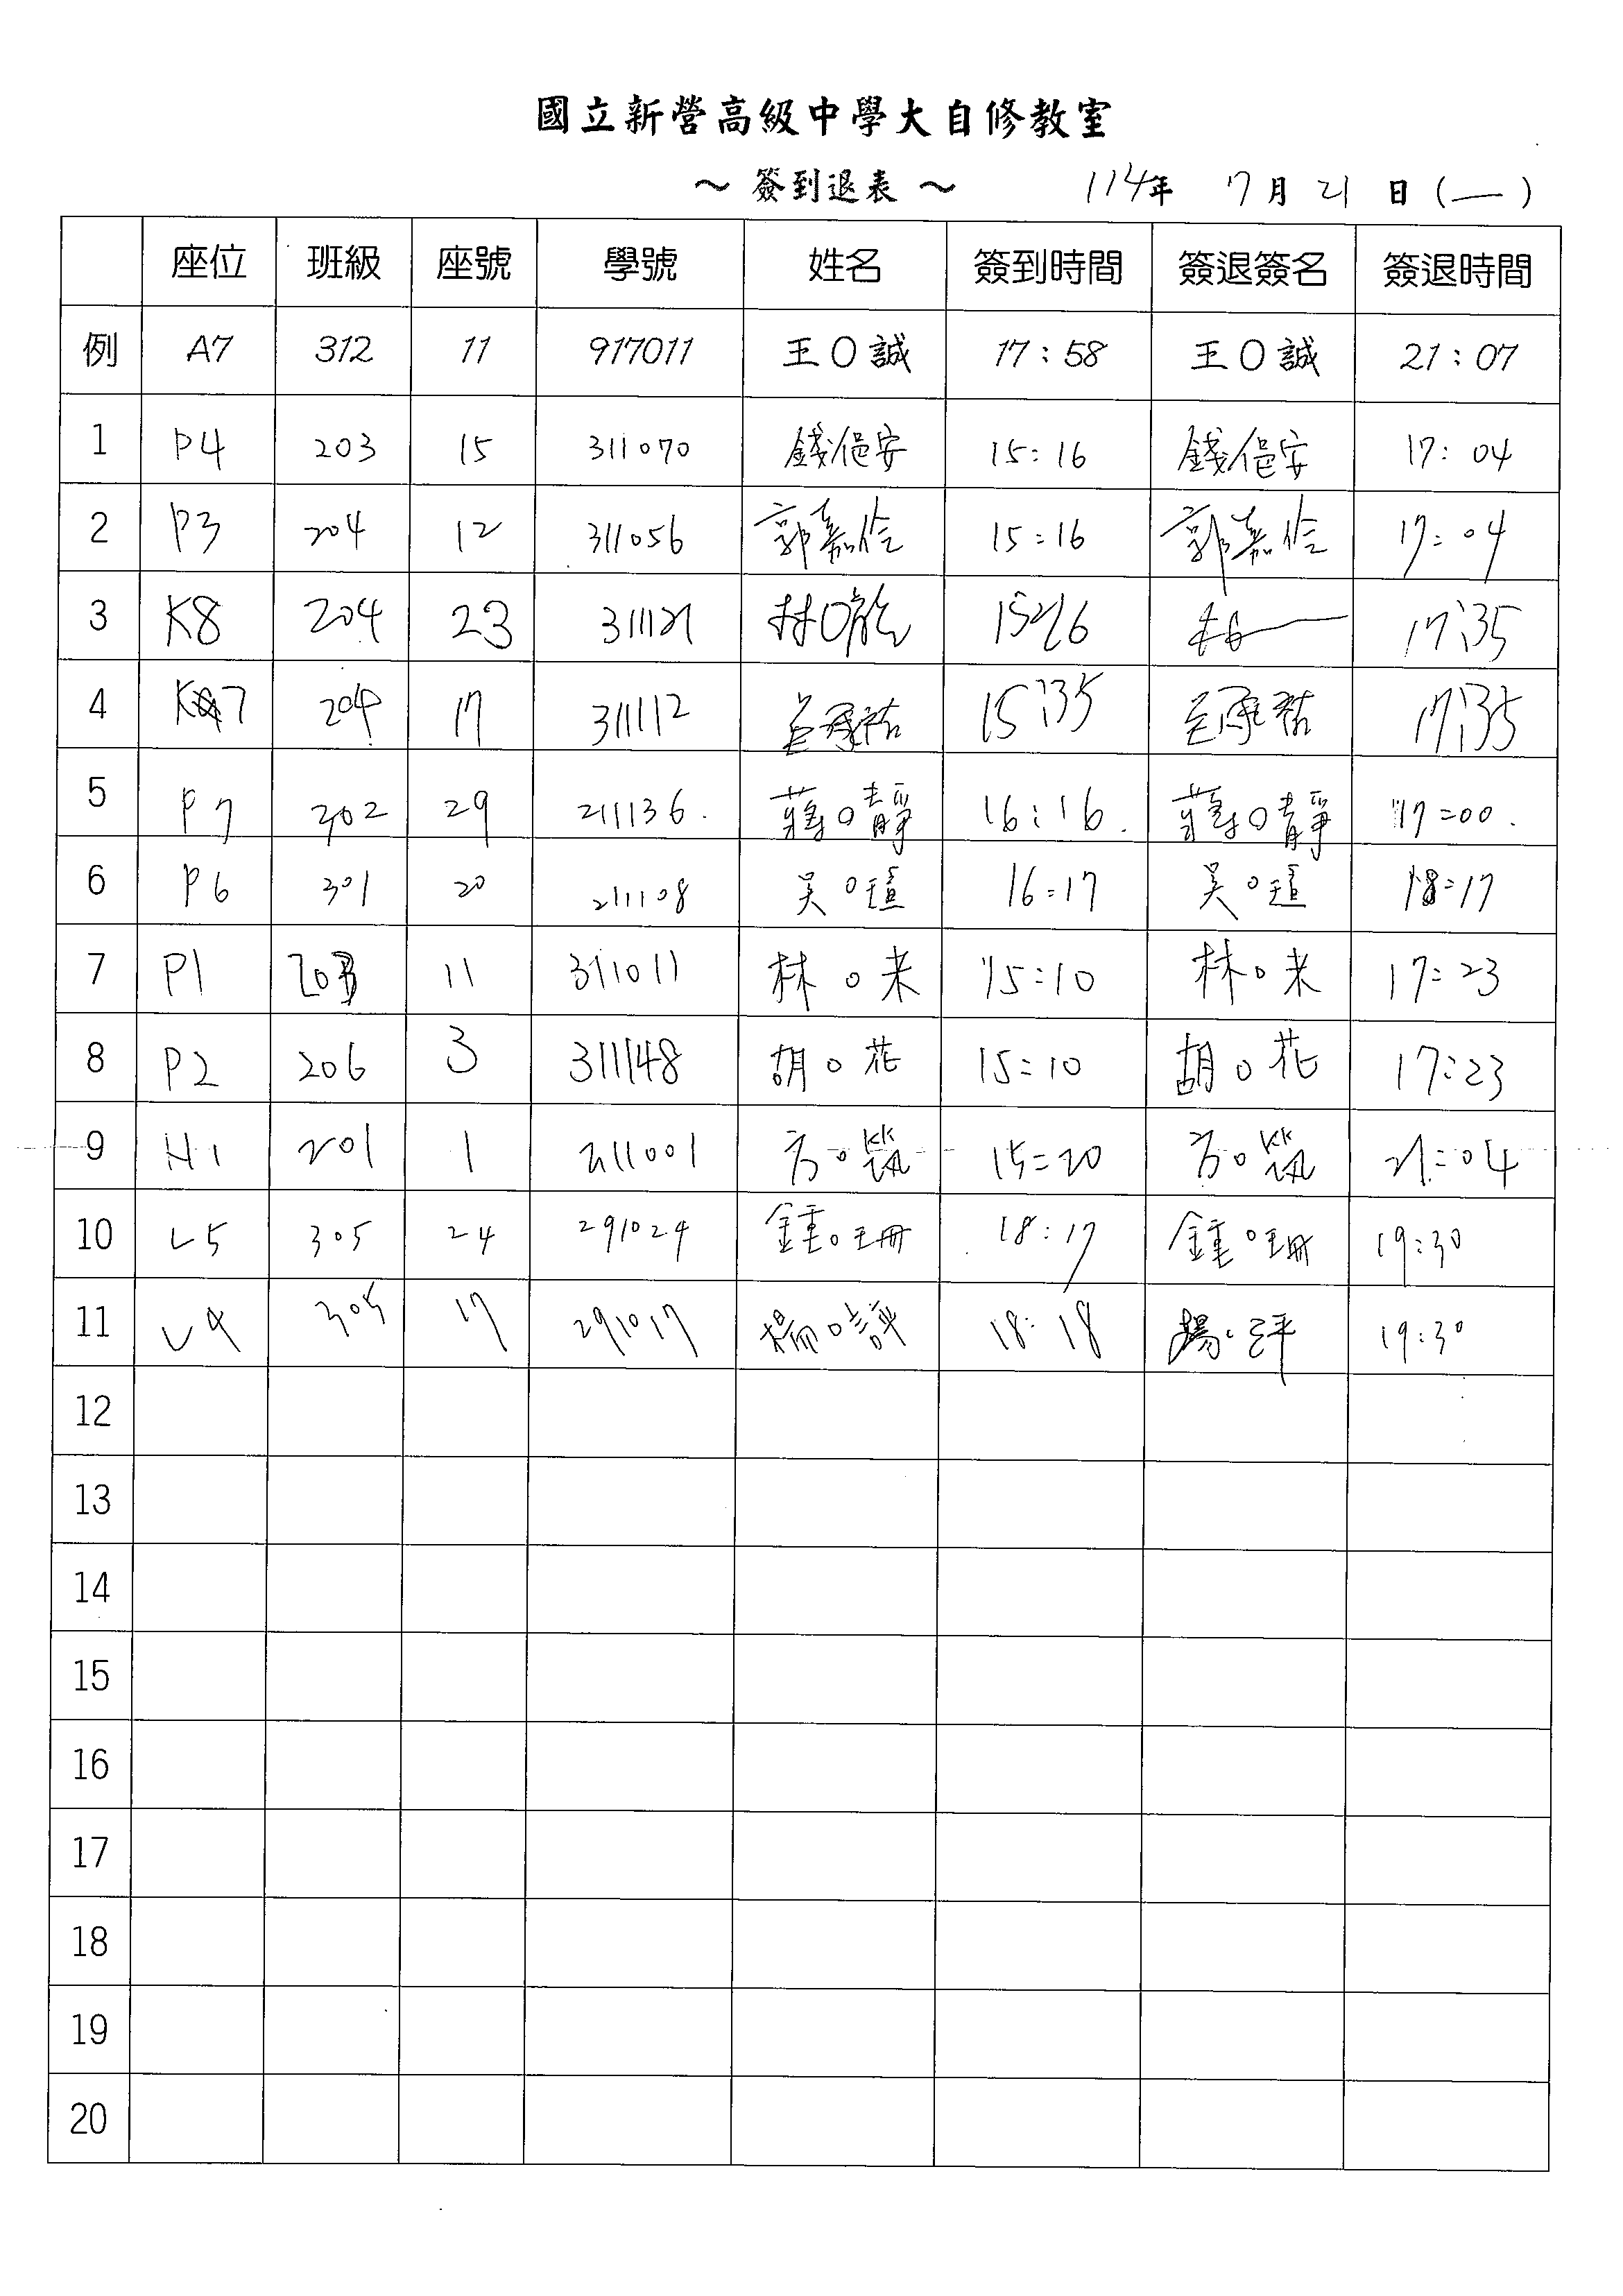 國立新營高級中學大自修教室
～ 簽到退表 ～ 114年 7月 21 日 (一)
座位 班級 座號 學號 姓名 簽到時間 簽退簽名 簽退時間
例 A7 312 11 917011 王O誠 17:58 王O誠 21:07
1 P4 203 15 311070 錢俋安 15:16 錢俋安 17:04
2 P3 204 12 311056 郭嘉伶 15:16 郭嘉伶 17:04
3 K8 204 23 311121 林O龍 17:35
4 K 7 204 17 311112 15:35 17:35
5 P7 302 29 211136. 蔣O靜 16:16. 蔣O靜 17:00.
6 P6 301 20 211108 吳O瑄 16:17 吳O瑄 18:17
7 P1 203 11 311011 林O来 15:10 林O来 17:23
8 P2 206 3 311148 胡O花 15:10 胡O花 17:23
9 H1 201 1 211001 方O筑 15:20 方O筑 21:04
10 L5 305 24 291024 鍾O珊 18:17 鍾O珊 19:30
11 L4 305 17 291017 楊O評 18:18 楊O評 19:30
12
13
14
15
16
17
18
19
20